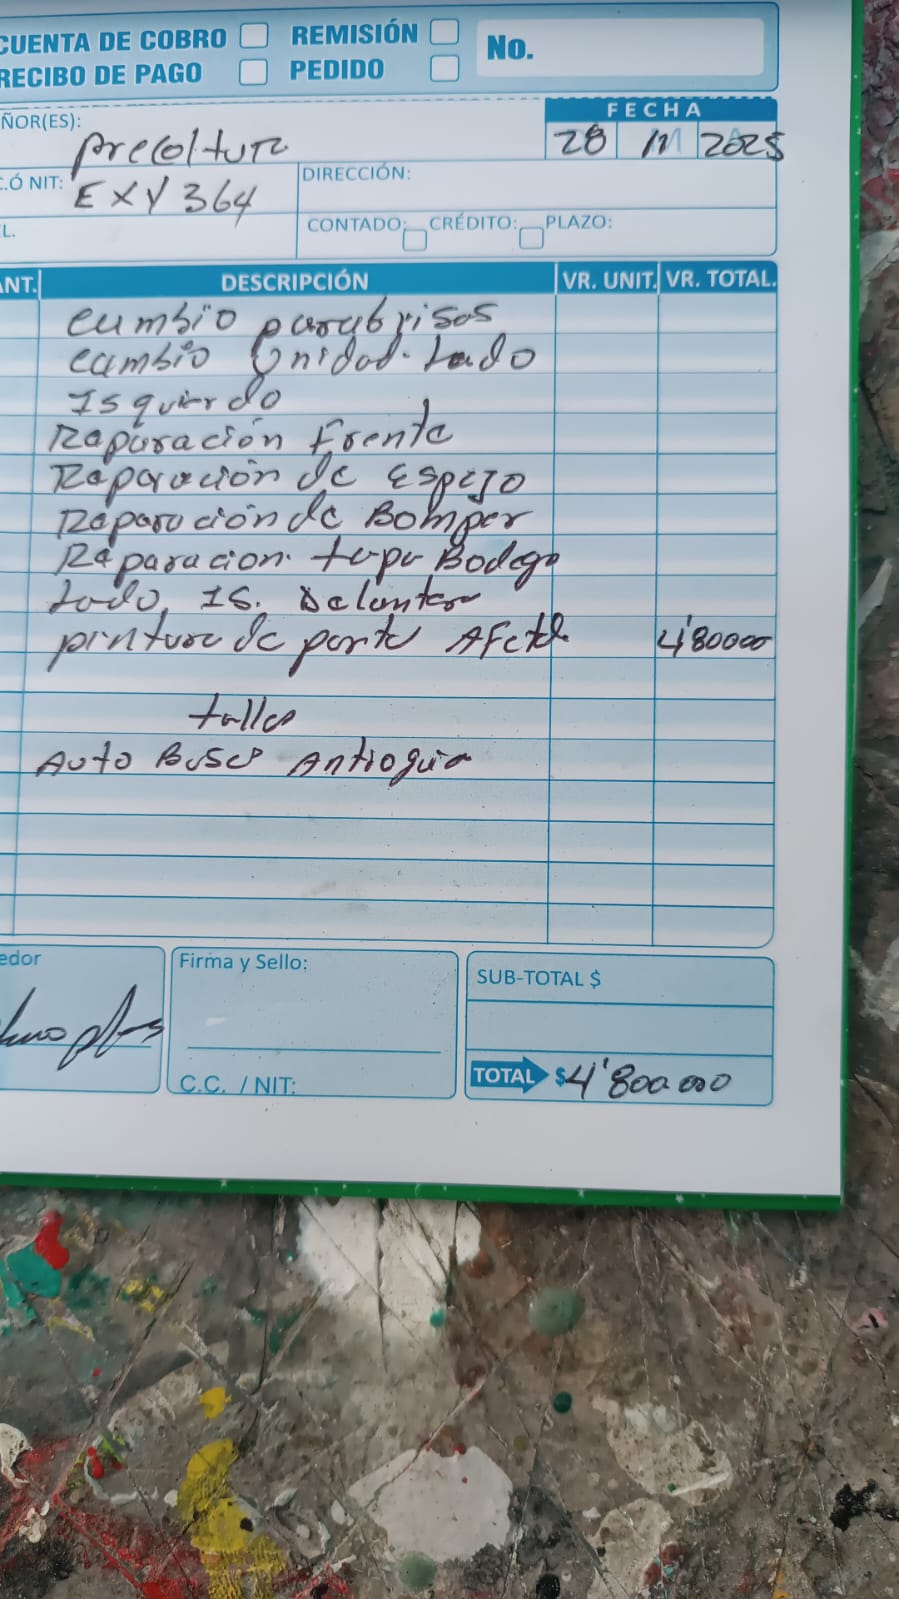 CUENTA DE COBRO REMISIÓN No.
RECIBO DE PAGO PEDIDO
FECHA
ÑOR(ES): precoltura 28 11 2025
.Ó NIT: EXY 364 DIRECCIÓN:
L. CONTADO: CRÉDITO: PLAZO:
ANT. DESCRIPCIÓN VR. UNIT. VR. TOTAL.
cambio parabrisas
cambio Unidad. lado
Isquierdo
Raparación Frente
Raparación de Espejo
Raparación de Bomper
Raparacion. tapa Bodega
lado, IS. Delantera
pintura de parte Afetd. 4'80000
taller
Auto Buses Antioquia
edor Firma y Sello: SUB-TOTAL $
C.C. / NIT: TOTAL $4'800000